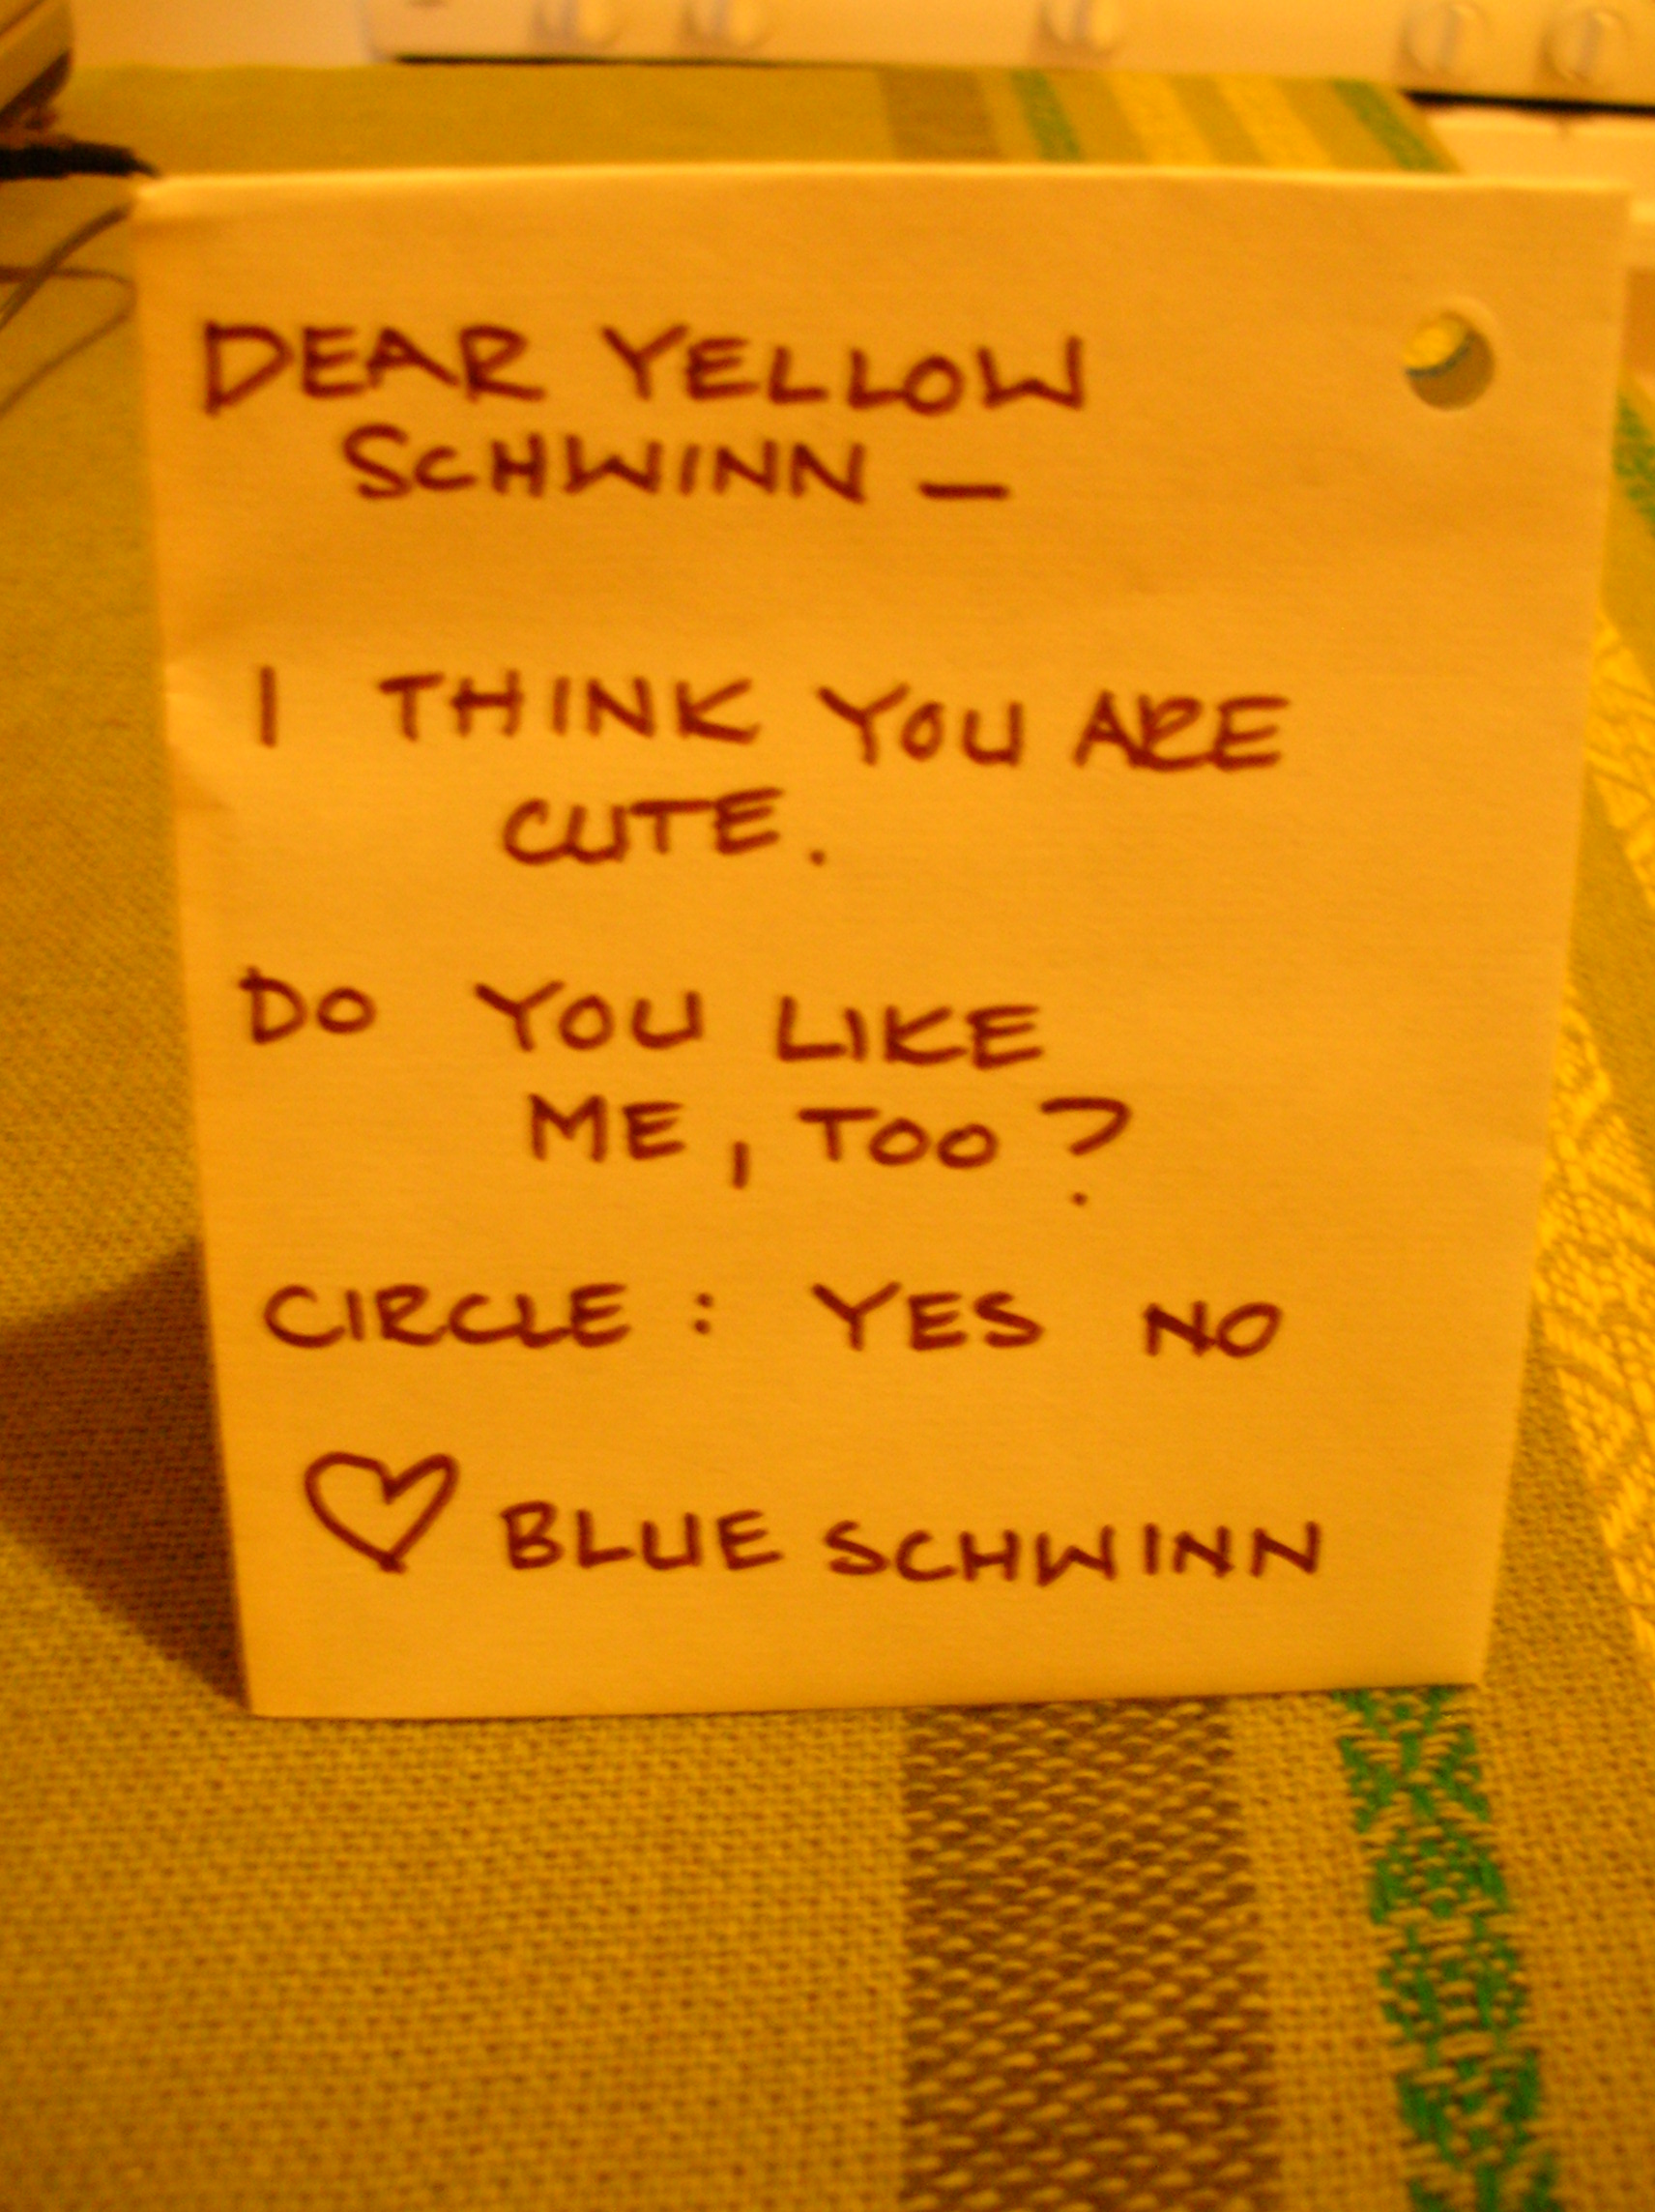 DEAR YELLOW
SCHWINN —
I THINK YOU ARE
CUTE.
DO YOU LIKE
ME, TOO?
CIRCLE: YES NO
♡ BLUE SCHWINN